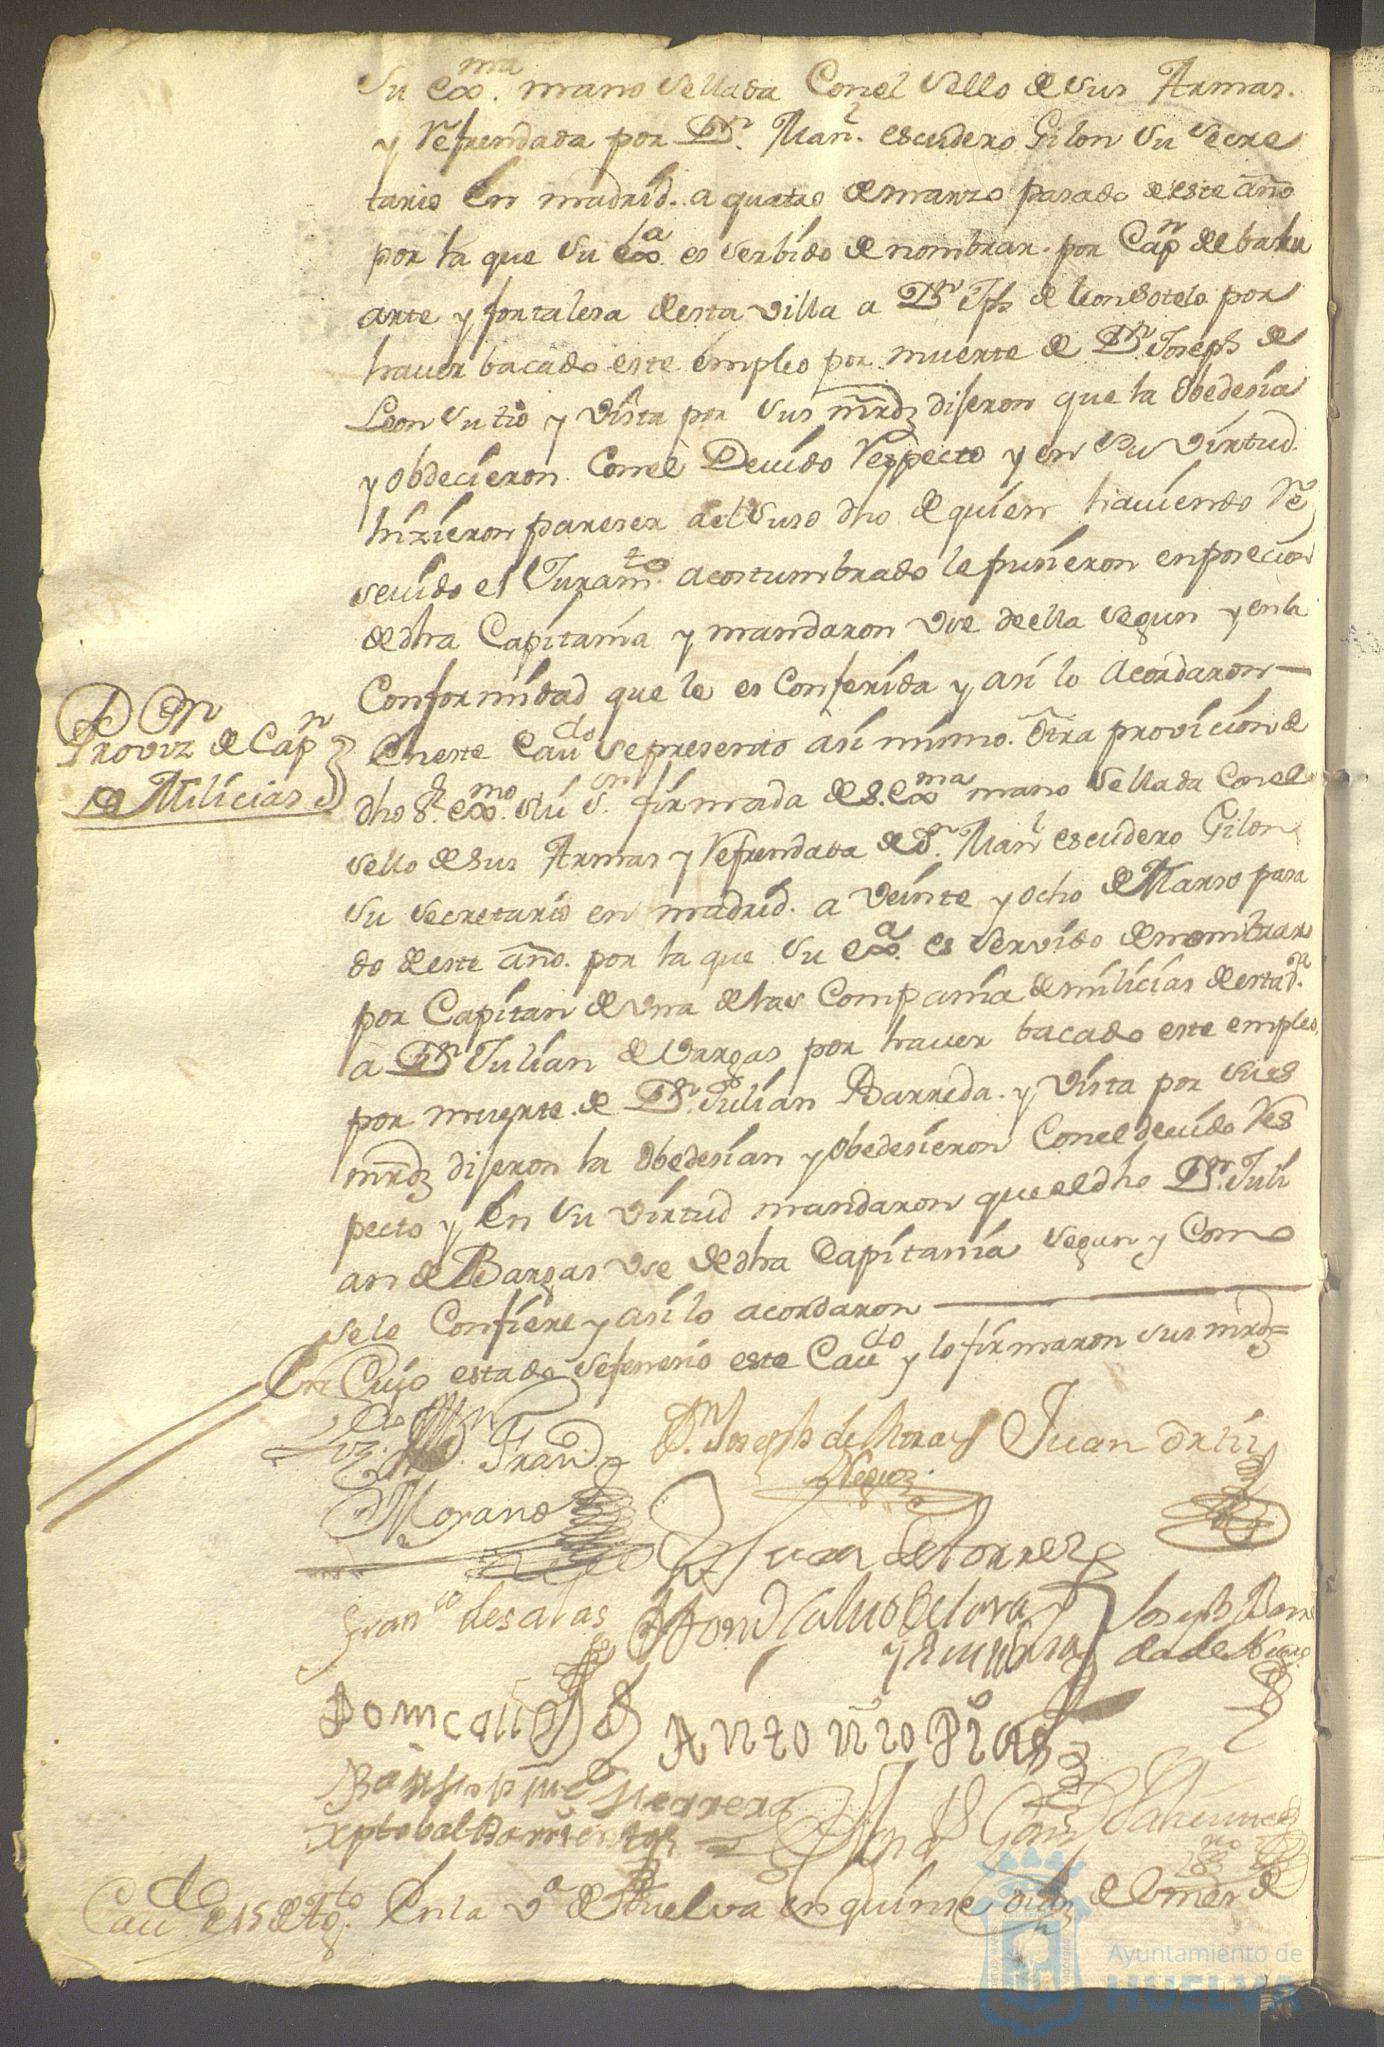 su exma. mano sellada Con el sello de sus Armas.
y Refrendada por Dn. Manl. escudero Gilon su secre
tario en madrid. a quatro de marzo pasado de este año
por la que su exa. es serbido de nombrar. por Capn de balu
arte y fortalesa de esta villa a Dn Jph de leon sotelo por
hauer bacado este empleo por muerte de Dn. Joseph de
Leon su tio y Vista por sus mrdz dijeron que la Obedesia
y Obdecieron Con el Deuido Respecto y en su Virtud.
hizieron pareser al suso dho de quien hauiendo Re
seuido el Juramto. acostumbrado le pusieron en posecion
de dha Capitania y mandaron Use de ella segun y en la
Conformidad que le es Conferida y asi lo Acordaron
Proviz.on de Capn
de Milicias
En este Caudo se presento asi mismo. Otra provicion de
dho Sr. exmo. Du Sr. firmada de S. exma mano sellada Con el
sello de sus Armas y Refrendada de Dn. Manl escudero Gilon
su secretario en madrid. a Veinte y ocho de Marso pasa
do de este año. por la que su exa. es servido de nombrar
por Capitan de Una de las Compania de milicias de esta Va.
a Dn Julian de Vargas por hauer bacado este empleo
por muerte. de Dn. Julian Barreda. y Vista por sus
mrdz dijeron la Obedesian y Obedesieron Con el deuido Res
pecto y En su Virtud mandaron que el dho Dn. Juli
an de Bargas Use de dha Capitania segun y Como
se le Confiere y asi lo acordaron
En Cuyo estado se fenesio este Caudo y lo firmaron sus mrdz=
Dn. Joseph de Mora y Negron
Juan Ortiz
Morano
Juan de torres
Franco de salas
Joseph Barre
da de
Antonio Pias
herrera
xptobal Barrientos
Caudo de 15 de Agto.
En la Va de Huelva en quinse dias del mes de
Ayuntamiento de
HUELVA